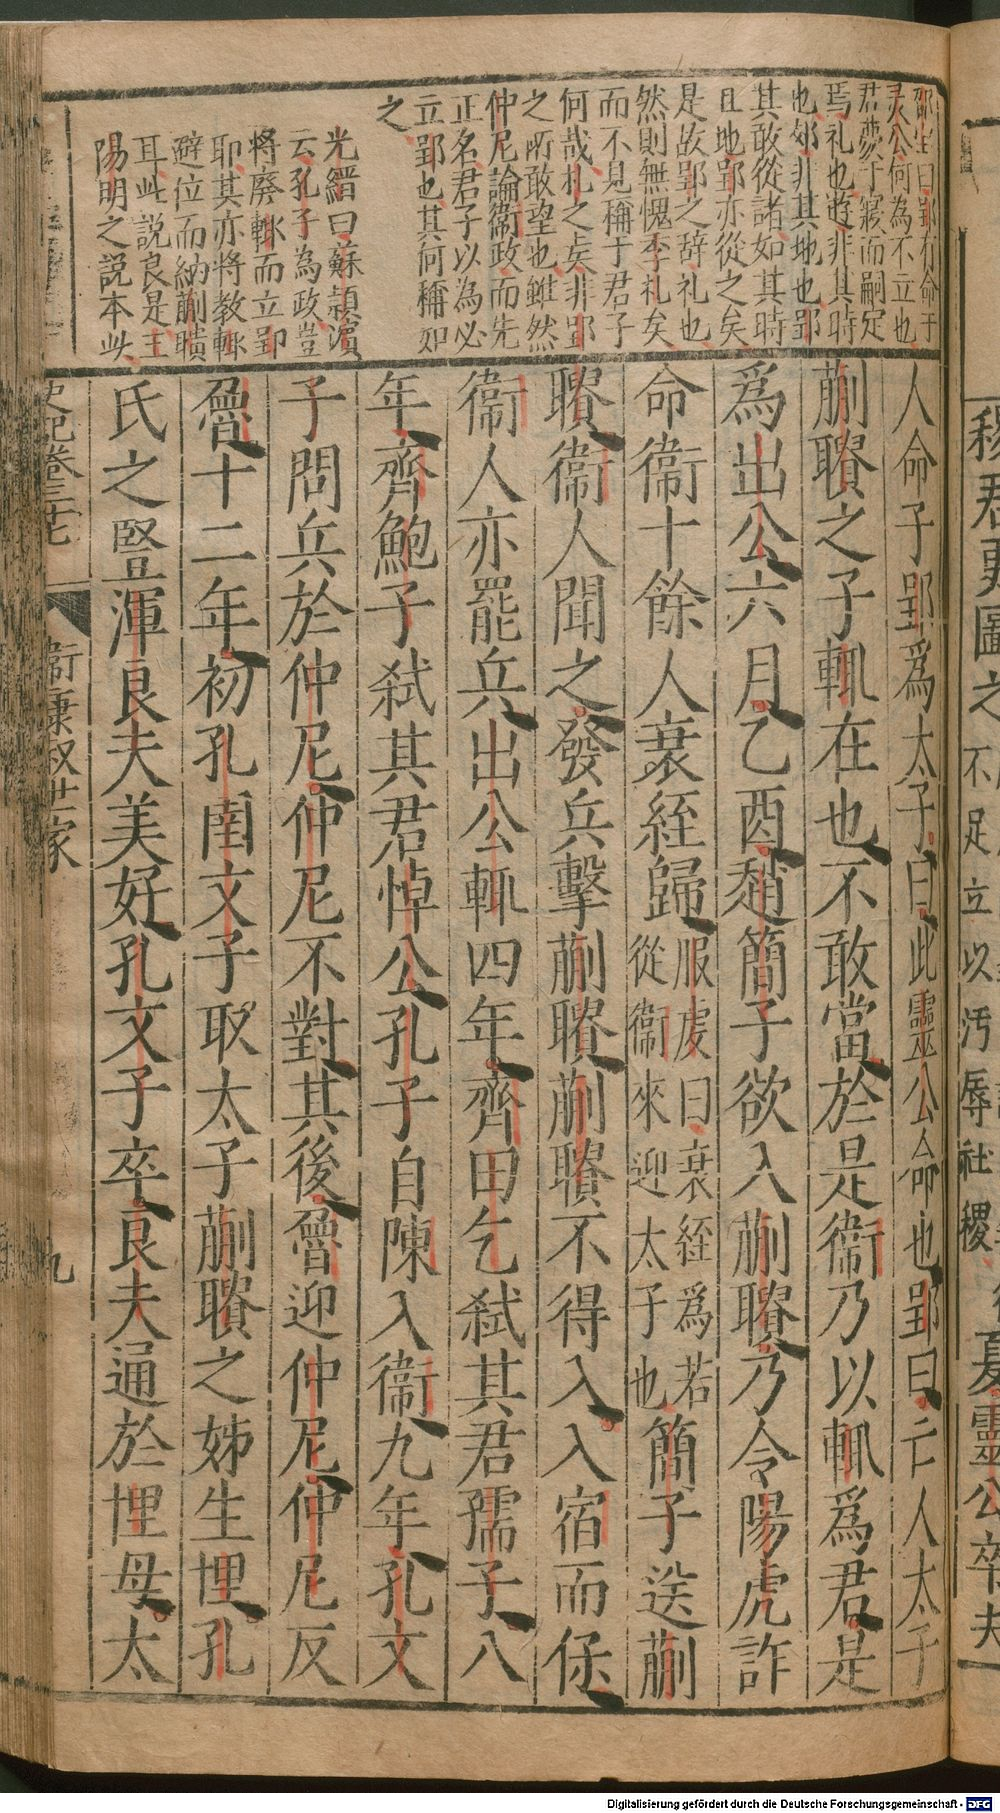 邵宝曰郢有命于
灵公何為不立也
君薨于寢而嗣定
焉礼也遊非其時
也郊非其地也郢
其敢從諸如其時
且地郢亦從之矣
是故郢之辞礼也
然則無愧季札矣
而不見稱于君子
何哉札之矣非郢
之所敢望也雖然
仲尼論衞政而先
正名君子以為必
立郢也其何稱如
之
光縉曰蘇潁濱
云孔子為政豈
将廢輒而立郢
耶其亦将教輒
避位而納蒯聵
耳此説良是王
陽明之説本此
人命子郢爲太子曰此靈公命也郢曰亡人太子
蒯聵之子輒在也不敢當於是衞乃以輒爲君是
爲出公六月乙酉趙簡子欲入蒯聵乃令陽虎詐
命衞十餘人衰絰歸
服虔曰衰絰爲若
從衞來迎太子也
簡子送蒯
聵衞人聞之發兵擊蒯聵蒯聵不得入入宿而保
衞人亦罷兵出公輒四年齊田乞弑其君孺子八
年齊鮑子弑其君悼公孔子自陳入衞九年孔文
子問兵於仲尼仲尼不對其後魯迎仲尼仲尼反
魯十二年初孔圉文子取太子蒯聵之姊生悝孔
氏之豎渾良夫美好孔文子卒良夫通於悝母太
史記卷三十七
衞康叔世家
九
不足立以汚辱社稷
靈公卒夫